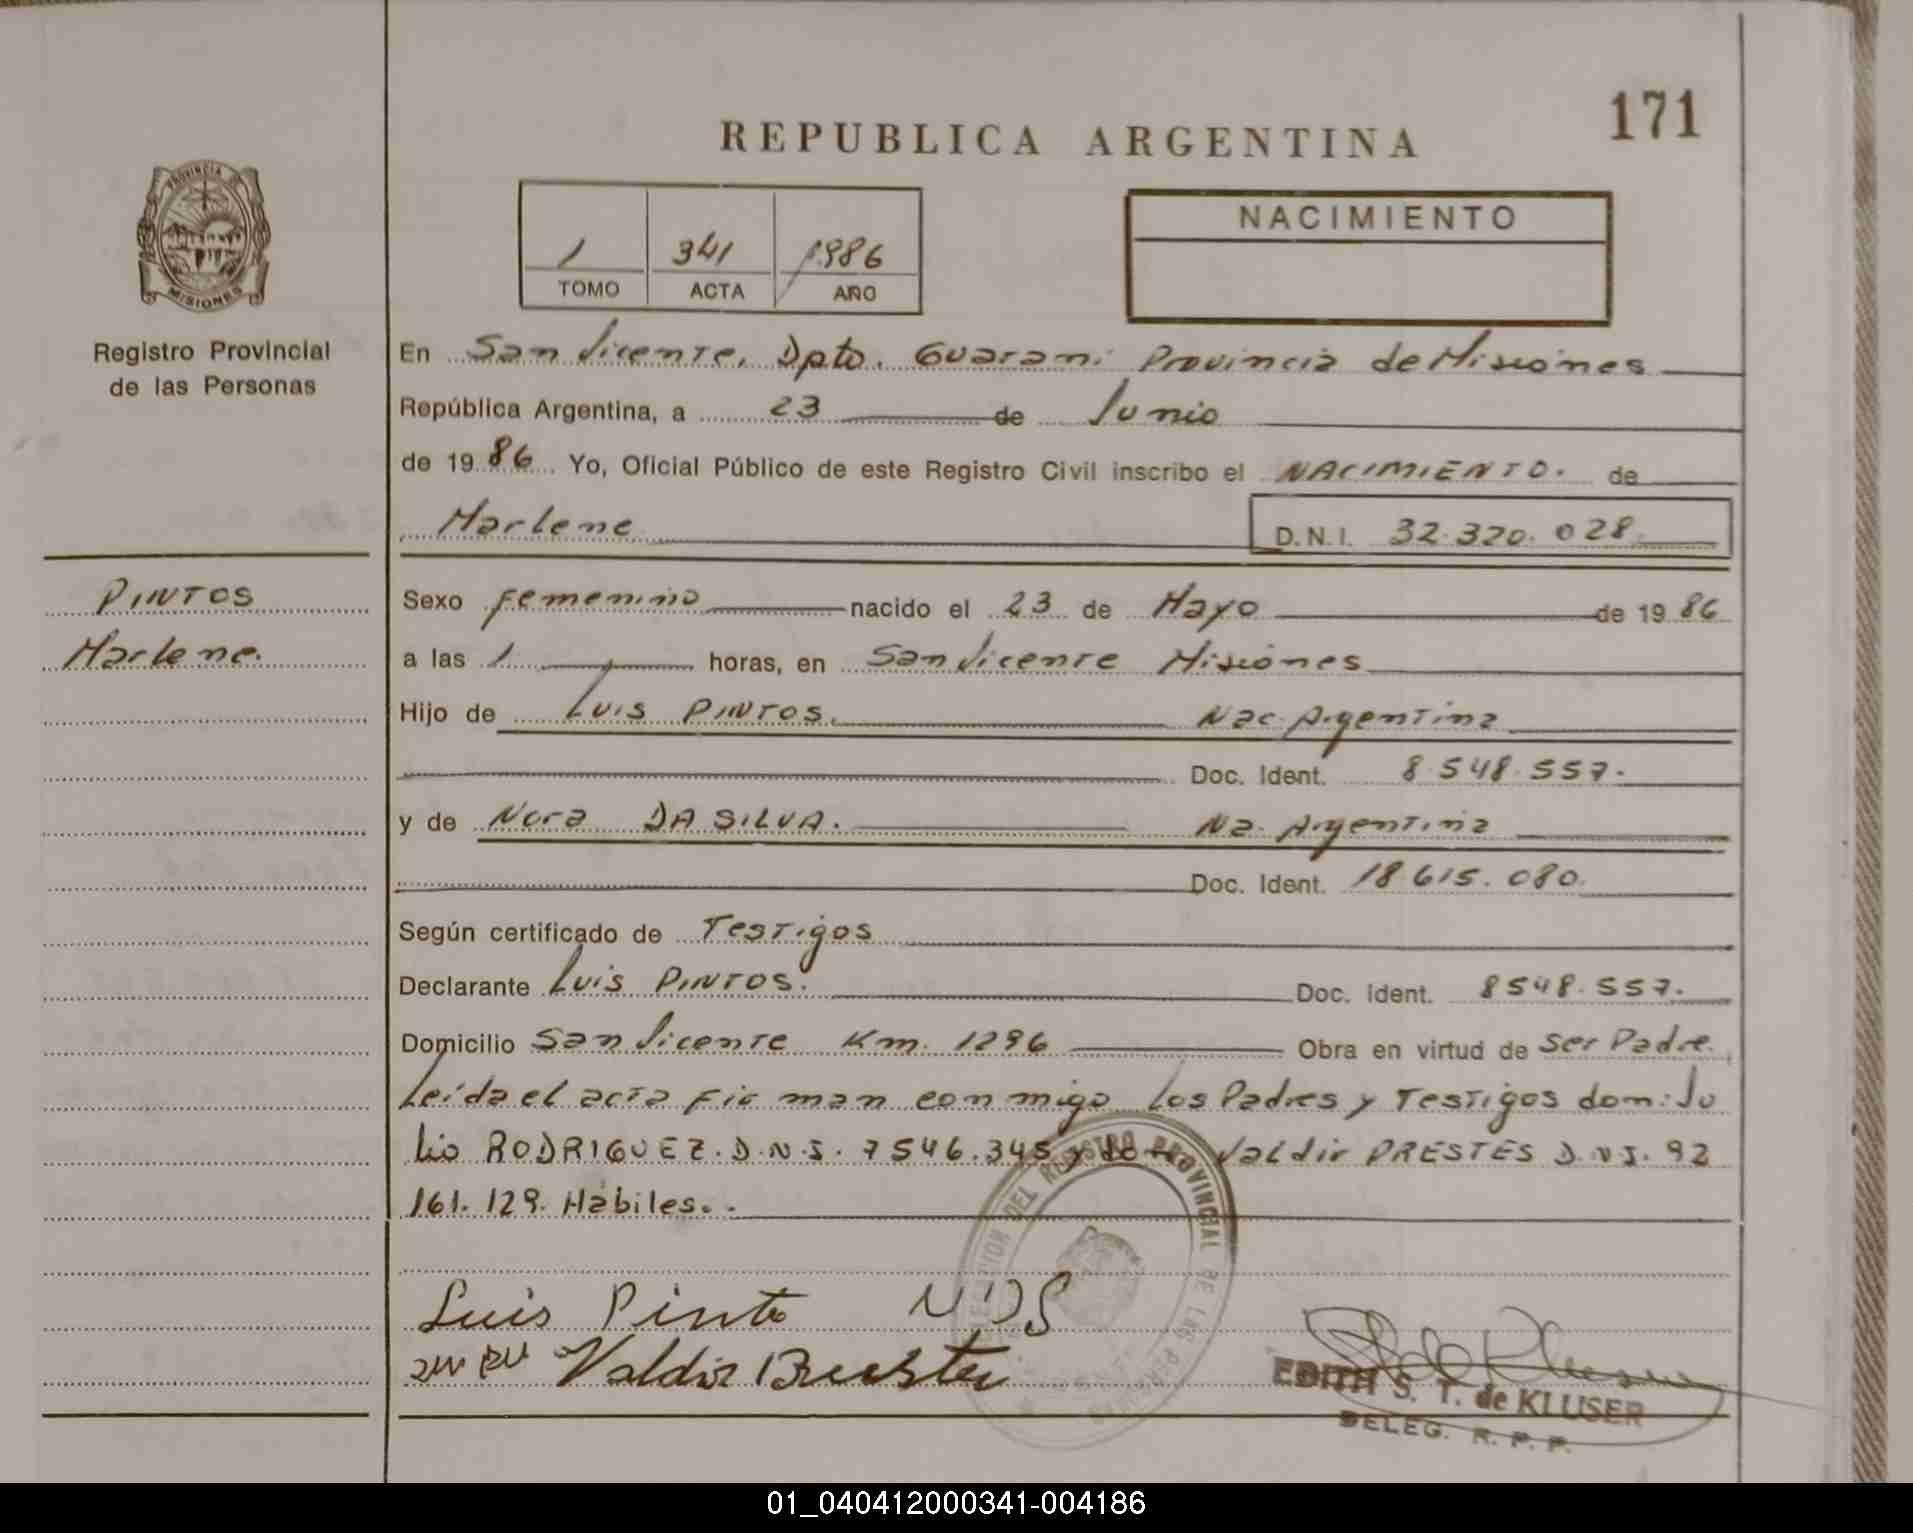 171
REPUBLICA ARGENTINA
PROVINCIA DE
MISIONES
Registro Provincial
de las Personas
1 341 1986
TOMO ACTA AÑO
NACIMIENTO
En San Vicente, Dpto. Guarani Provincia de Misiones
República Argentina, a 23 de Junio
de 1986 Yo, Oficial Público de este Registro Civil inscribo el NACIMIENTO. de
Marlene D.N.I. 32.320.028
PINTOS
Marlene.
Sexo Femenino nacido el 23 de Mayo de 1986
a las 1 horas, en San Vicente Misiones
Hijo de Luis PINTOS. Nac. Argentina
Doc. Ident. 8.548.557.
y de Nora DA SILVA. Na. Argentina
Doc. Ident. 18.615.080.
Según certificado de Testigos
Declarante Luis PINTOS. Doc. Ident. 8548.557.
Domicilio San Vicente Km. 1296 Obra en virtud de ser Padre.
Leída el acta firman conmigo Los Padres y Testigos dom: Ju
lio RODRIGUEZ. D.N.I. 7546.345 y don Valdir PRESTES D.N.I. 92
161.129. Hábiles..
Luis Pinto NDS
Valdir
EDITH S. T. de KLUSER
DELEG. R. P. P.
DEL REGISTRO PROVINCIAL DE LAS
01_040412000341-004186